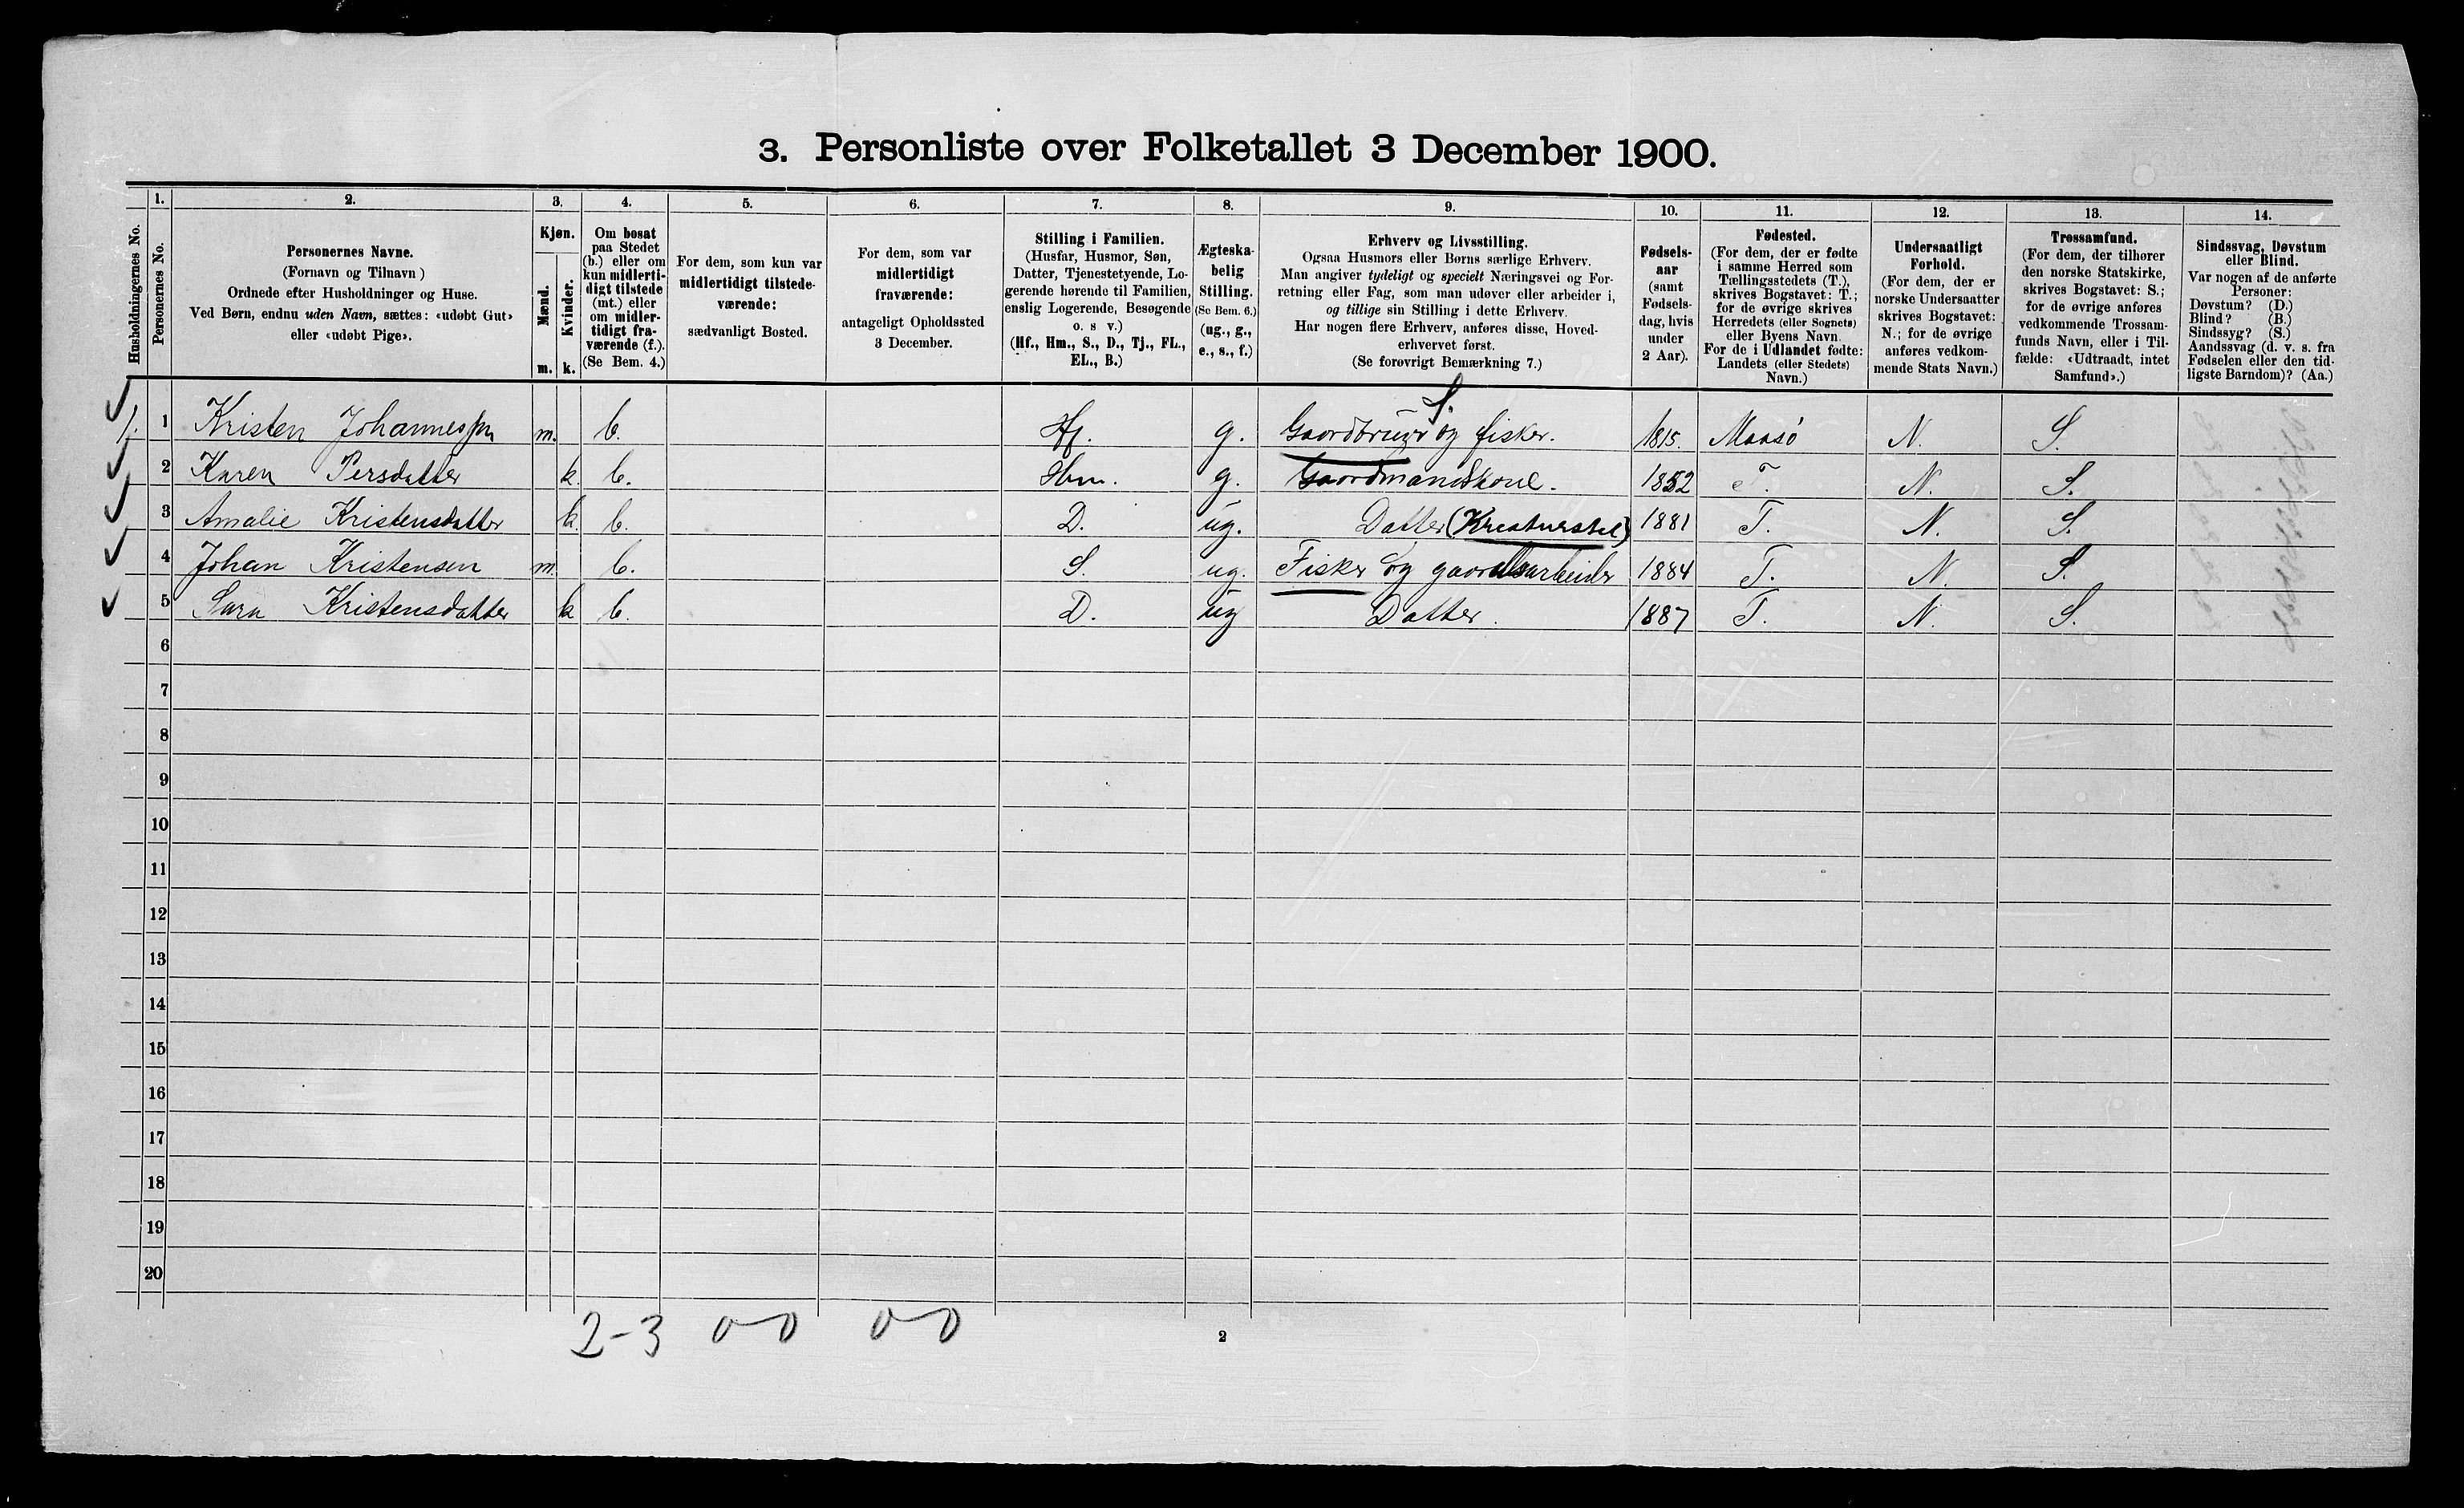 3. Personliste over Folketallet 3 December 1900.
Husholdningernes No.
1. Personernes No.
2. Personernes Navne.
(Fornavn og Tilnavn)
Ordnede efter Husholdninger og Huse.
Ved Børn, endnu uden Navn, sættes: «udøbt Gut»
eller «udøbt Pige».
3. Kjøn.
Mænd. m.
Kvinder. k.
4. Om bosat
paa Stedet
(b.) eller om
kun midlerti-
digt tilstede
(mt.) eller
om midler-
tidigt fra-
værende (f.).
(Se Bem. 4.)
5. For dem, som kun var
midlertidigt tilstede-
værende:
sædvanligt Bosted.
6. For dem, som var
midlertidigt
fraværende:
antageligt Opholdssted
3 December.
7. Stilling i Familien.
(Husfar, Husmor, Søn,
Datter, Tjenestetyende, Lo-
gerende hørende til Familien,
enslig Logerende, Besøgende
o. s v.)
(Hf., Hm., S., D., Tj., FL.,
EL., B.)
8. Ægteska-
belig
Stilling.
(Se Bem. 6.)
(ug., g.,
e., s., f.)
9. Erhverv og Livsstilling.
Ogsaa Husmors eller Børns særlige Erhverv.
Man angiver tydeligt og specielt Næringsvei og For-
retning eller Fag, som man udøver eller arbeider i,
og tillige sin Stilling i dette Erhverv.
Har nogen flere Erhverv, anføres disse, Hoved-
erhvervet først.
(Se forøvrigt Bemærkning 7.)
10. Fødsels-
aar
(samt
Fødsels-
dag, hvis
under
2 Aar).
11. Fødested.
(For dem, der er fødte
i samme Herred som
Tællingsstedets (T.),
skrives Bogstavet: T.;
for de øvrige skrives
Herredets (eller Sognets)
eller Byens Navn.
For de i Udlandet fødte:
Landets (eller Stedets)
Navn.)
12. Undersaatligt
Forhold.
(For dem, der er
norske Undersaatter
skrives Bogstavet:
N.; for de øvrige
anføres vedkom-
mende Stats Navn.)
13. Trossamfund.
(For dem, der tilhører
den norske Statskirke,
skrives Bogstavet: S.;
for de øvrige anføres
vedkommende Trossam-
funds Navn, eller i Til-
fælde: «Udtraadt, intet
Samfund».)
14. Sindssvag, Døvstum
eller Blind.
Var nogen af de anførte
Personer:
Døvstum? (D.)
Blind? (B.)
Sindssyg? (S.)
Aandssvag (d. v. s. fra
Fødselen eller den tid-
ligste Barndom)? (Aa.)
S.
1. 1 Kristen Johannessen m. b. Hf. g. Gaordbruger og fisker. 1815. Maasø N. S.
2 Karen Persdatter k. b. Hm. g. Gaardmandskone. 1852 T. N. S.
3 Amalie Kristensdatter k. b. D. ug. Datter (Kreaturstel) 1881 T. N. S.
4 Johan Kristensen m. b. S. ug. Fisker og gaordsarbeider 1884 T. N. S.
5 Sara Kristensdatter k b. D. ug Datter. 1887 T. N. S.
6
7
8
9
10
11
12
13
14
15
16
17
18
19
20
2-3 0-0 0-0
2